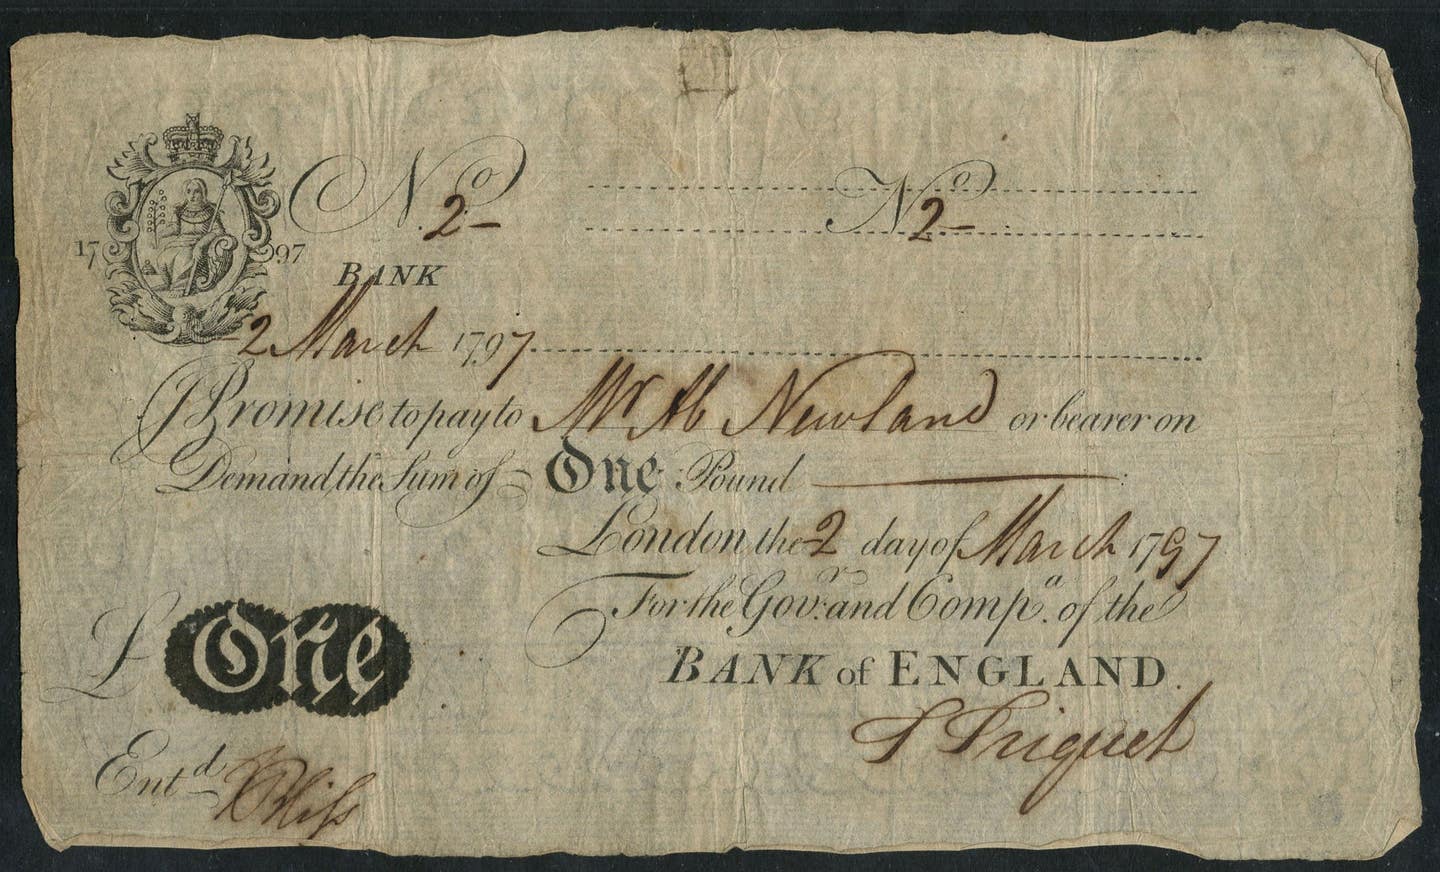 No. 2 –
No. 2 –
17 97
BANK
2 March 1797
I Promise to pay to Mr Ab Newland or bearer on
Demand, the Sum of One Pound
London the 2 day of March 1797
For the Govr. and Compa. of the
£ One
BANK of ENGLAND.
T Triquet
Entd Bliss